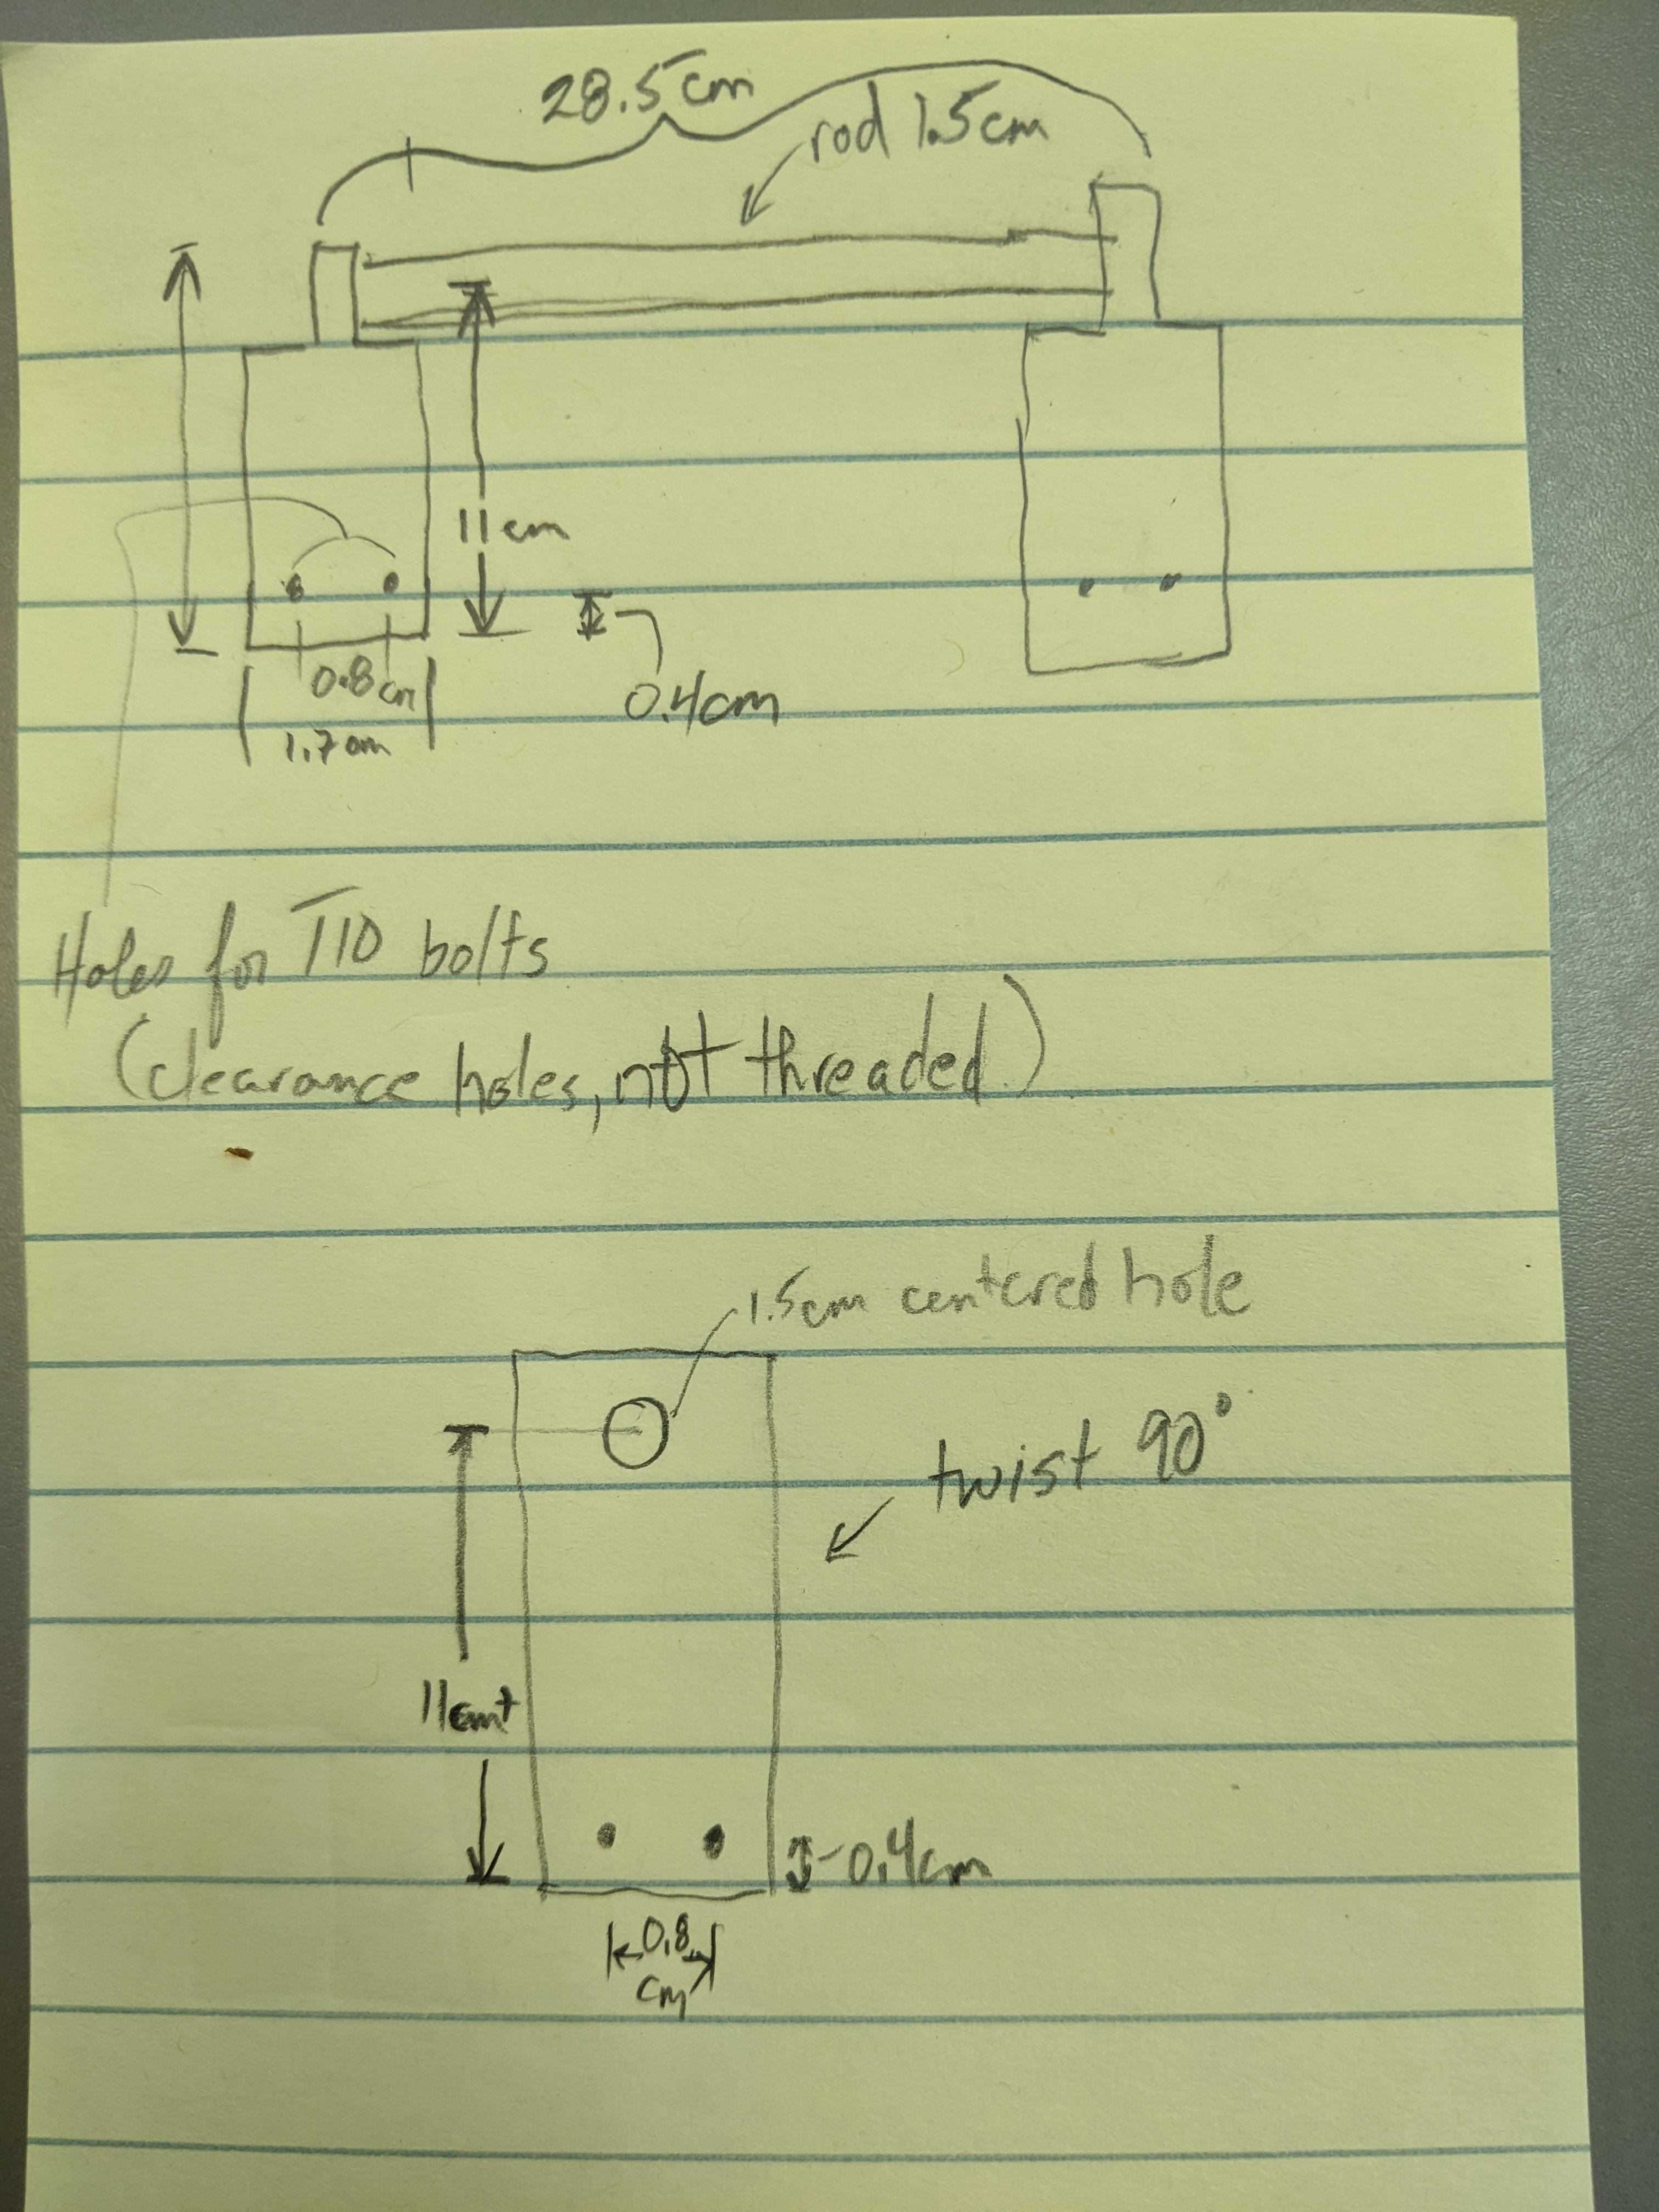 28.5cm
rod 1.5cm
11cm
0.8cm
0.4cm
1.7cm
Holes for T10 bolts
(clearance holes, not threaded)
1.5cm centered hole
twist 90°
11cm+
0.4cm
0.8
cm